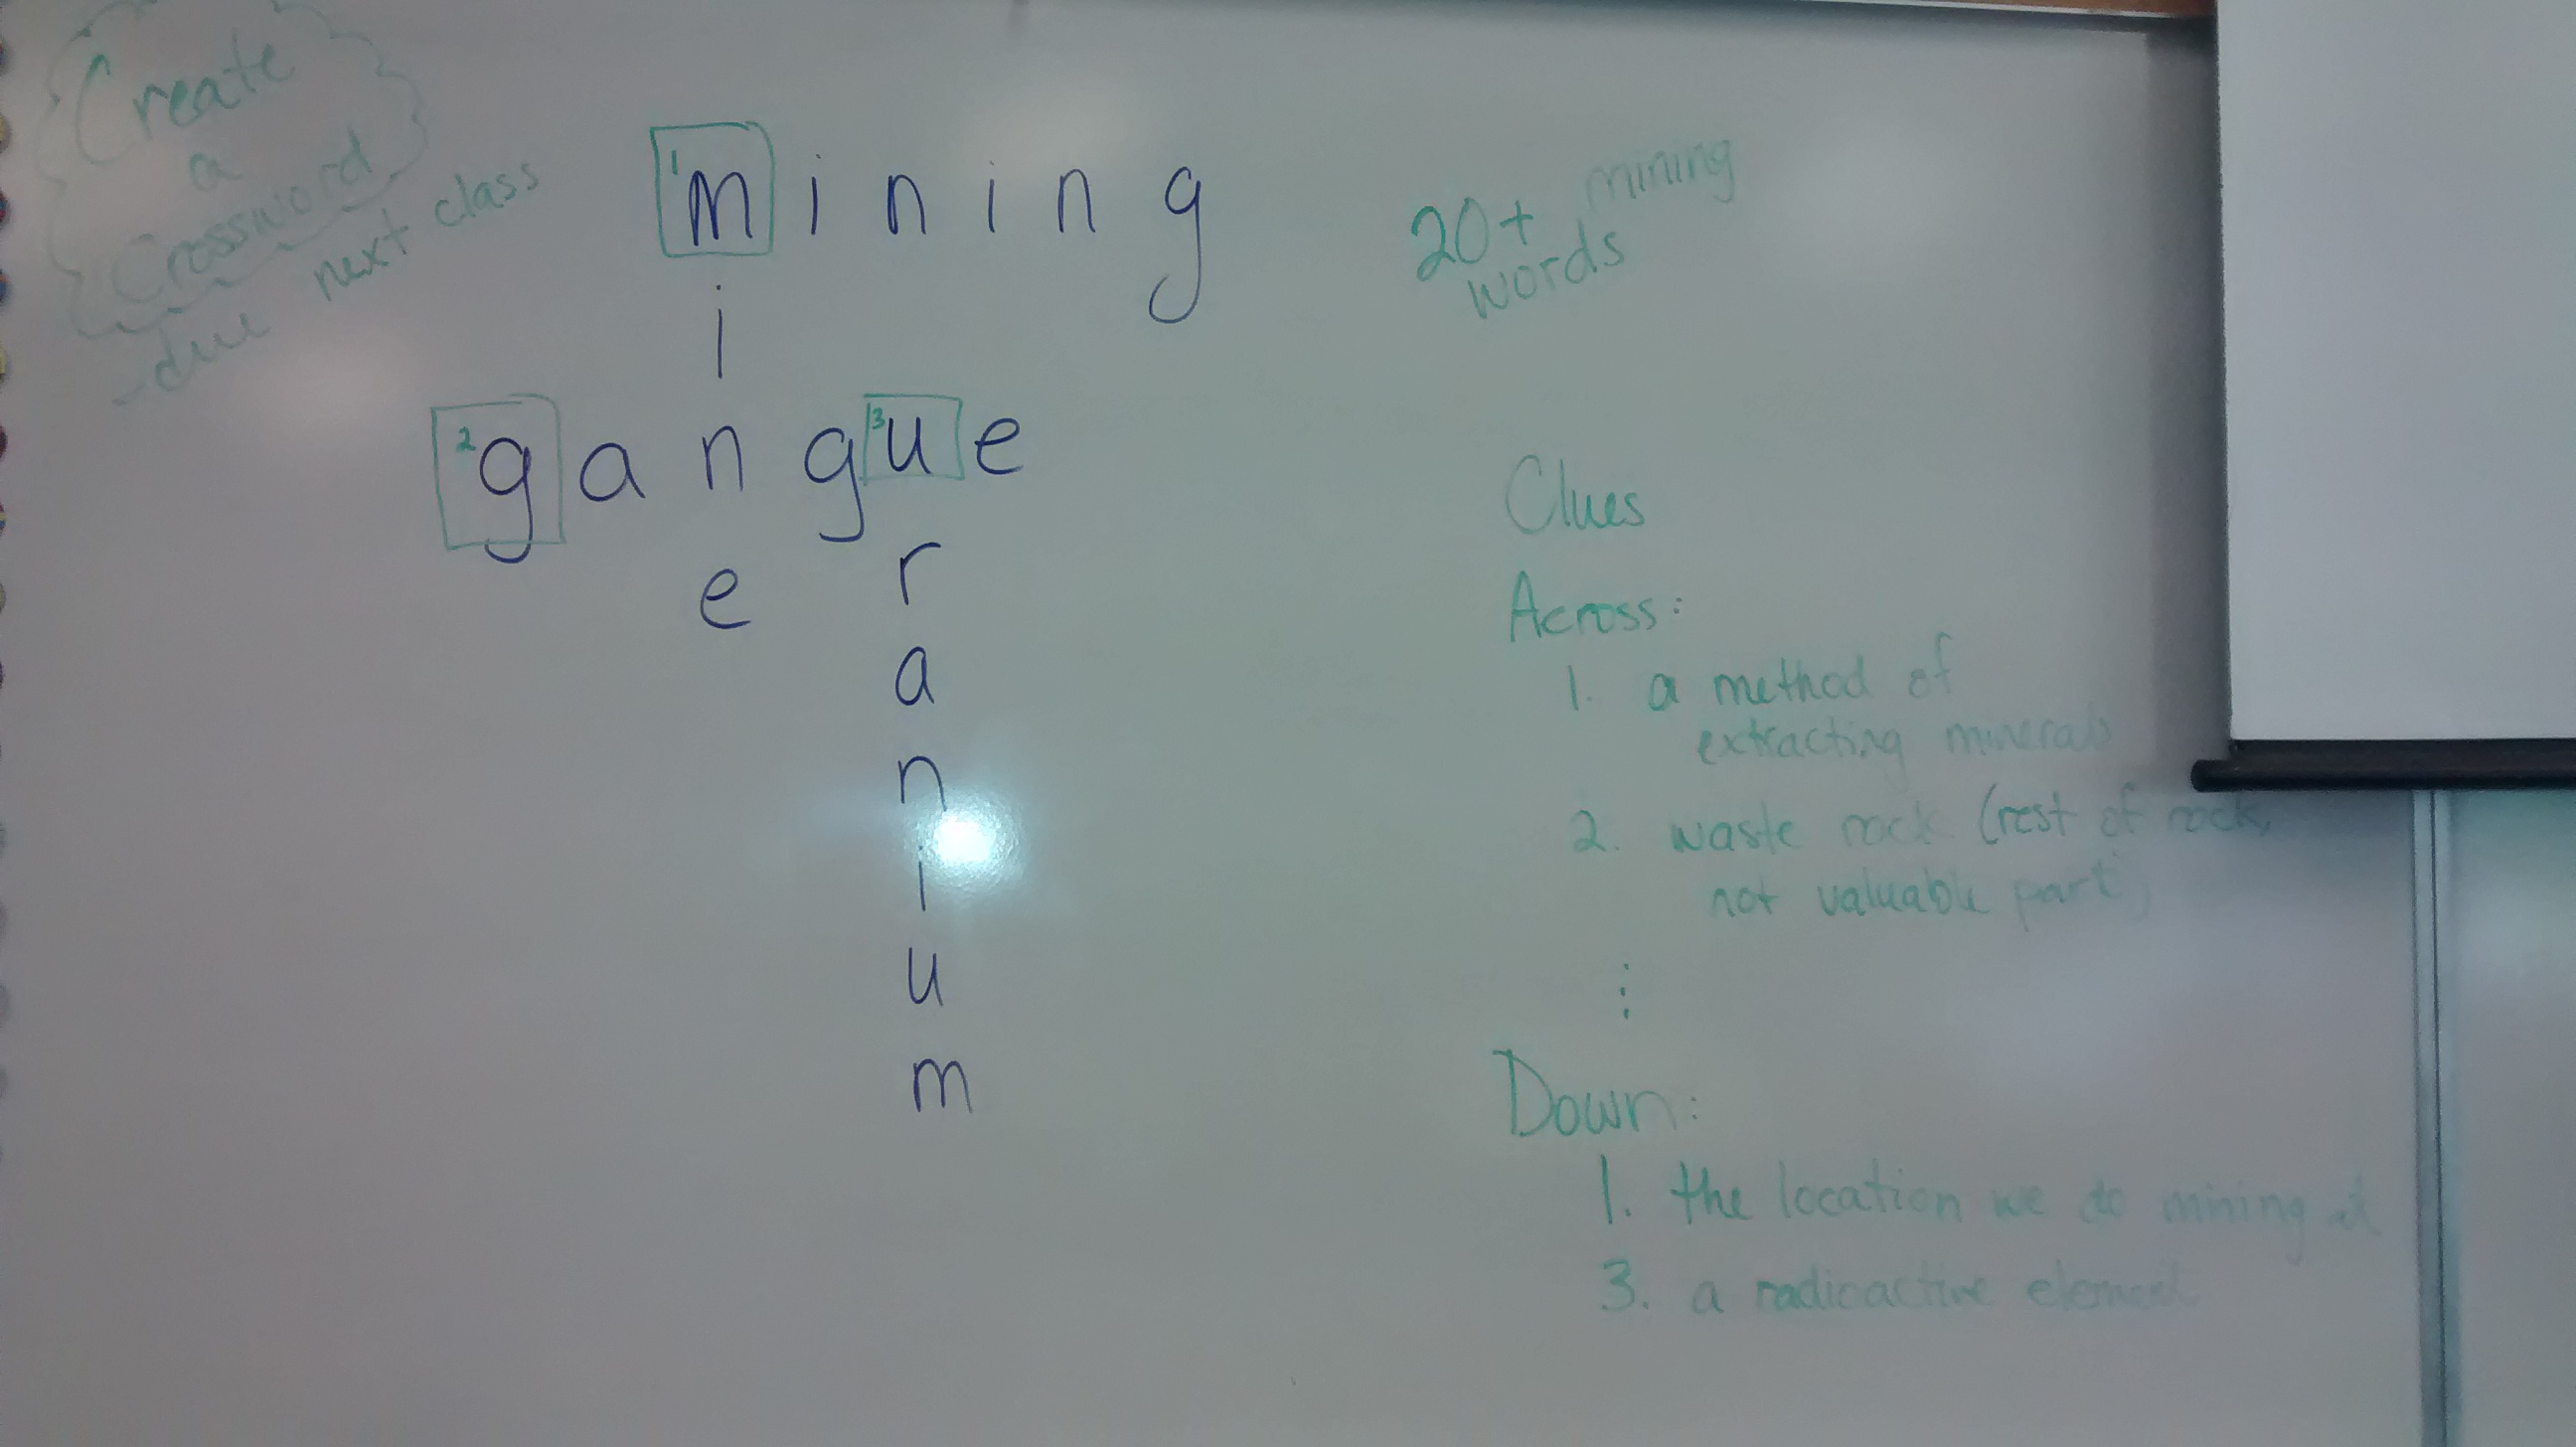 Create
a
Crossword
- due next class
1 m i n i n g
i
2 g a n g 3 u e
e r
a
n
i
u
m
20+ mining
words
Clues
Across:
1. a method of
extracting minerals
2. waste rock (rest of rock,
not valuable part)
⋮
Down:
1. the location we do mining at
3. a radioactive element